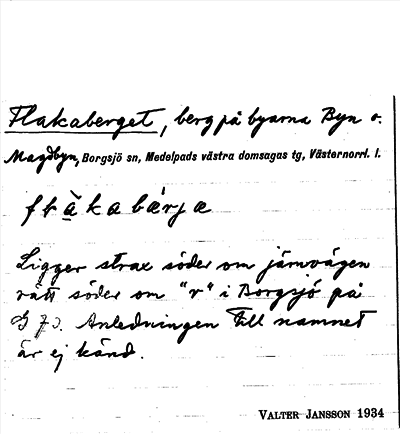 Flakaberget, berg på byarna Byn o.
Magdbyn, Borgsjö sn, Medelpads västra domsagas tg, Västernorrl. l.
Ligger strax söder om järnvägen
rätt söder om "r" i Borgsjö på
Anledningen till namnet
är ej känd.
VALTER JANSSON 1934